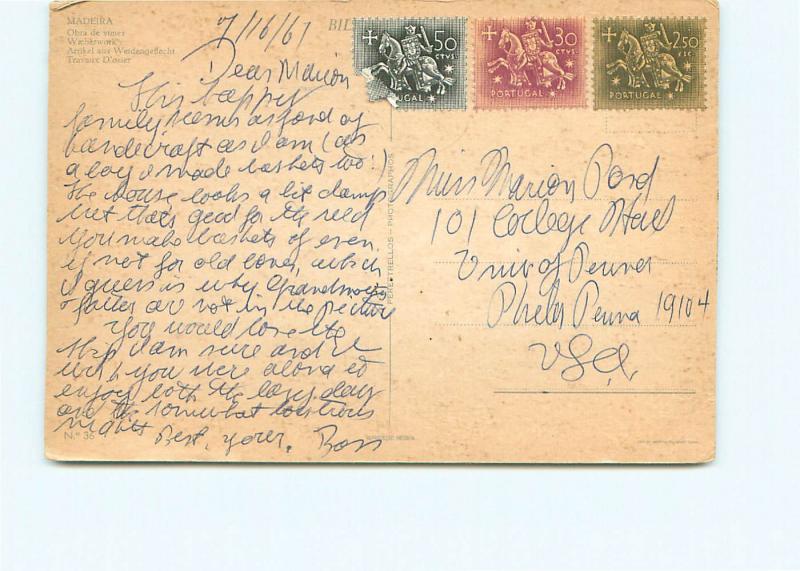 MADEIRA
Obra de vimes
Wickerwork
Artikel aus Weidengeflecht
Travaux D'osier
7/16/67
BIL
50 CTVS.
PORTUGAL
30 CTVS.
PORTUGAL
2$50
PORTUGAL
Dear Marion
This happy
family seems as fond of
handicraft as I am (as
a boy I made baskets too!)
The house looks a bit damp
but thats good for the reed
you make baskets of even
if not for old bones, which
I guess is why Grandmother
+ father are not in the picture
You would love the
ship I am sure and I
wish you were along to
enjoy both the lazy days
and the somewhat boisterous
nights
Best, yours, Boss
Nº 36
PERESTRELLOS - PHOTOGRAPHOS
Miss Marion Pond
101 College Hall
Univ of Penna
Phila Penna 19104
USA